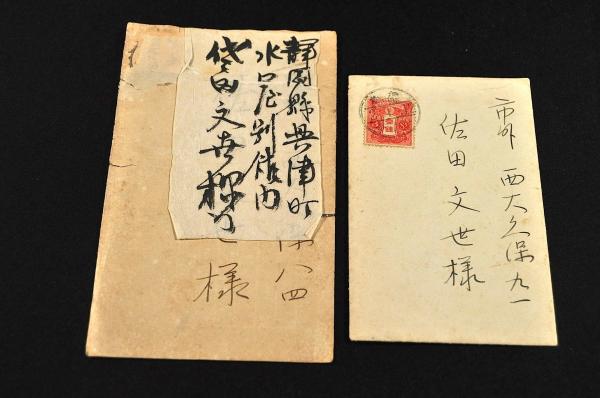 静岡縣興津町
水口屋別館内
佐田文世様
保八四
様
市外 西大久保九一
佐田文世様